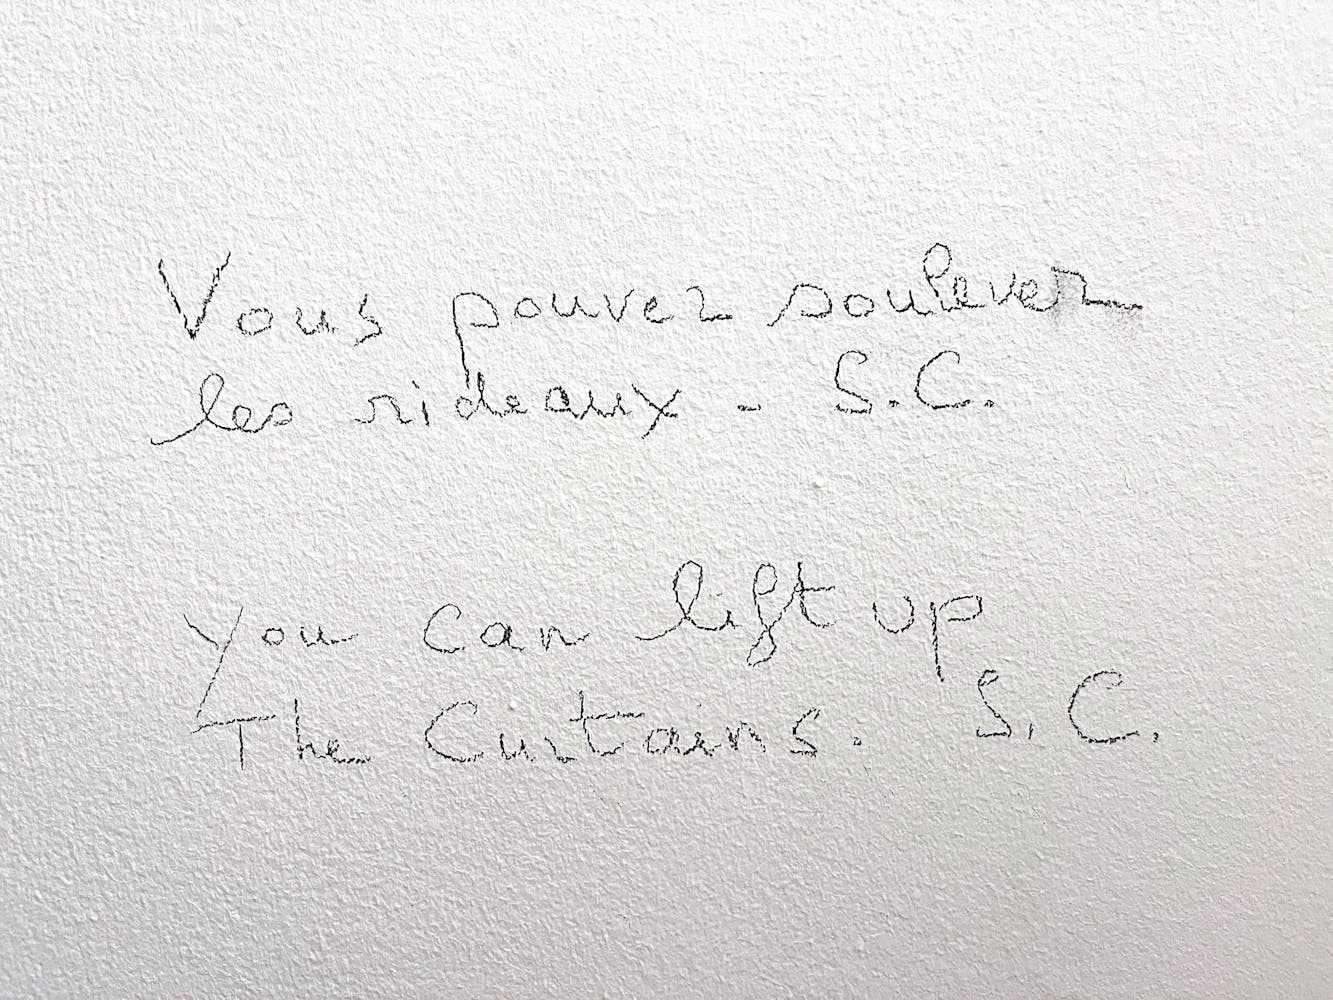 Vous pouvez soulever
les rideaux - S.C.
You can lift up
The Curtains. S.C.